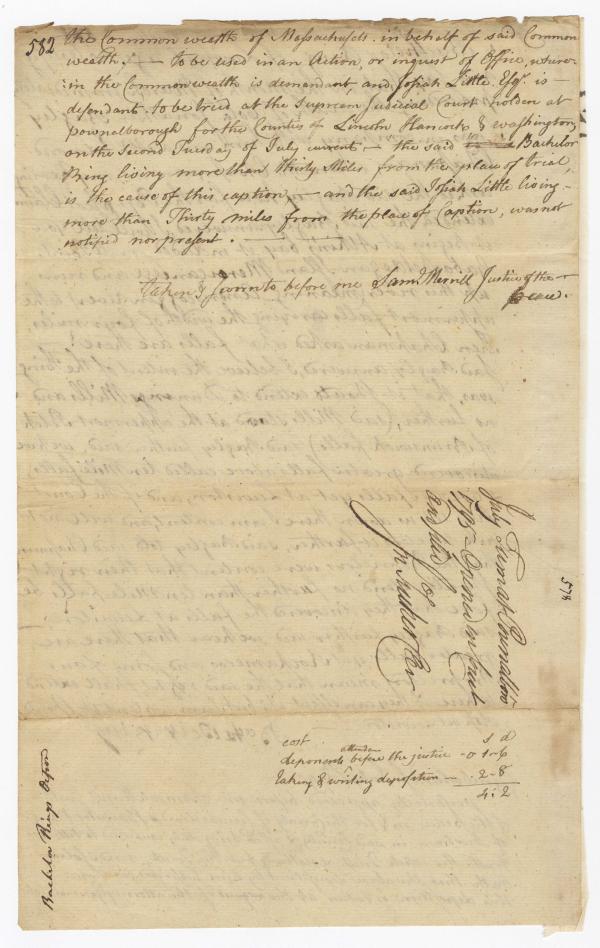 582
the Common wealth of Massachusets. in behalf of said Common
wealth. — To be used in an Action, or inquest of Office, where-
:in the Commonwealth is demandant, and Josiah Little. Esqr. is —
defendant. to be tried at the Supream Judicial Court holden at
Pownalborough for the Counties of Lincoln Hancock & Washington,
on the Second Tuesday of July current, — the said Bachelor
Ring living more than thirty Miles from the place of treal,
is the cause of this caption, — and the said Josiah Little living —
more than Thirty miles from the place of Caption, was not
notified nor present. —
Taken & sworn to before me Saml. Merrill Justice of the
peace.
July Term at Pownalboro
1795 Opened in Court
and filed
Jn Tucker Cler
578
cost s d
deponents attendce before the justice - 0 1-6
Taking & writing deposition — . 2-8
4:2
Bachelor Rings Depon